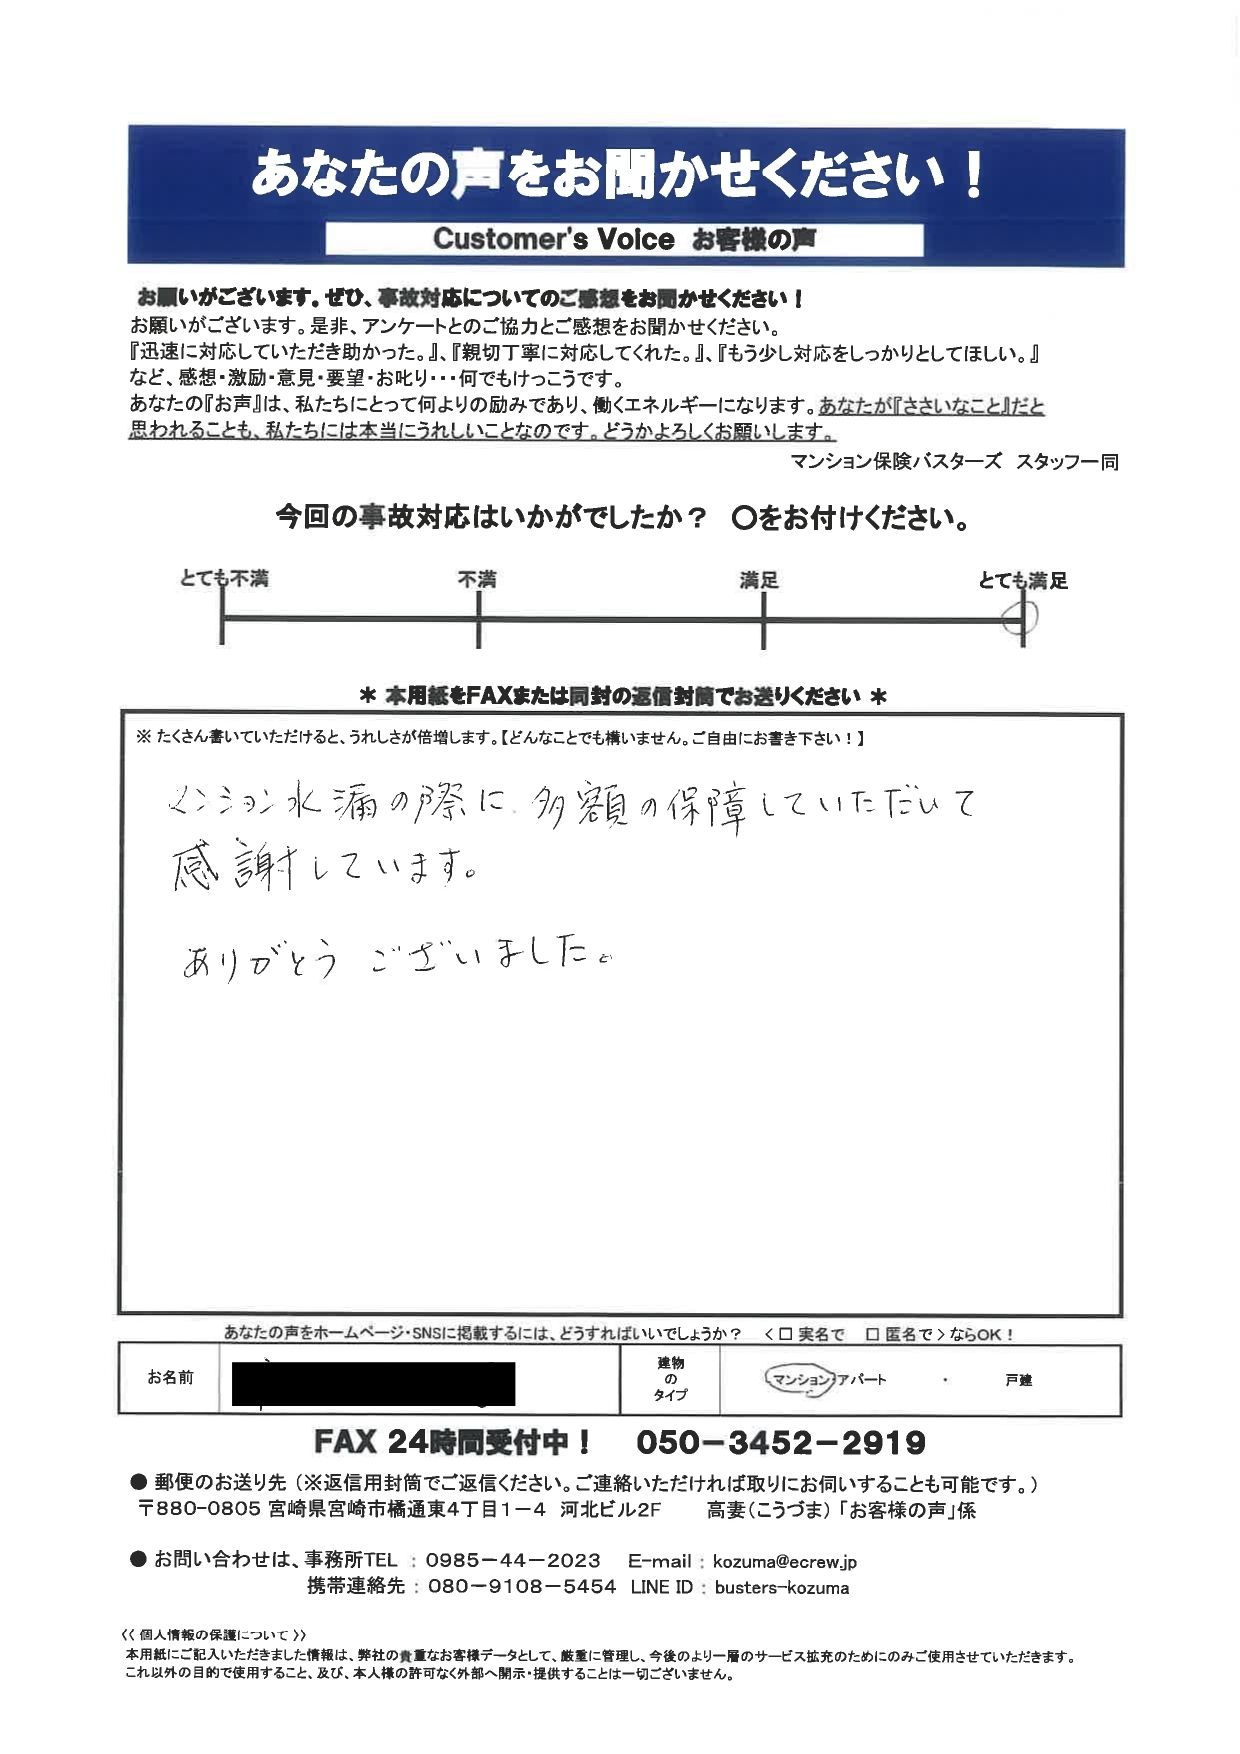 あなたの声をお聞かせください！
Customer's Voice お客様の声
お願いがございます。ぜひ、事故対応についてのご感想をお聞かせください！
お願いがございます。是非、アンケートとのご協力とご感想をお聞かせください。
『迅速に対応していただき助かった。』、『親切丁寧に対応してくれた。』、『もう少し対応をしっかりとしてほしい。』
など、感想・激励・意見・要望・お叱り・・・何でもけっこうです。
あなたの『お声』は、私たちにとって何よりの励みであり、働くエネルギーになります。あなたが『ささいなこと』だと
思われることも、私たちには本当にうれしいことなのです。どうかよろしくお願いします。
マンション保険バスターズ スタッフ一同
今回の事故対応はいかがでしたか？ 〇をお付けください。
とても不満 不満 満足 とても満足
＊ 本用紙をFAXまたは同封の返信封筒でお送りください ＊
※ たくさん書いていただけると、うれしさが倍増します。【どんなことでも構いません。ご自由にお書き下さい！】
マンション水漏の際に、多額の保障していただいて
感謝しています。
ありがとうございました。
あなたの声をホームページ・SNSに掲載するには、どうすればいいでしょうか？ ＜□ 実名で □ 匿名で＞ならOK！
お名前 建物のタイプ マンション・アパート ・ 戸建
FAX 24時間受付中！ 050－3452－2919
● 郵便のお送り先 （※返信用封筒でご返信ください。ご連絡いただければ取りにお伺いすることも可能です。）
〒880-0805 宮崎県宮崎市橘通東4丁目1－4 河北ビル2F 高妻（こうづま）「お客様の声」係
● お問い合わせは、事務所TEL ： 0985－44－2023 E-mail : kozuma@ecrew.jp
携帯連絡先 ： 080－9108－5454 LINE ID : busters-kozuma
《〈 個人情報の保護について 〉》
本用紙にご記入いただきました情報は、弊社の貴重なお客様データとして、厳重に管理し、今後のより一層のサービス拡充のためにのみご使用させていただきます。
これ以外の目的で使用すること、及び、本人様の許可なく外部へ開示・提供することは一切ございません。